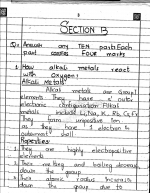 SECTION B
Q2 Answer any TEN parts Each
part carries Four marks
How alkali metals react
with oxygen?
Alkali Metals
Alkali metals are Group I
elements They have
electronic configuration. Alkali
metals include Li, Na, K, Rb, Cs, Fr
They form unipositive ion
as they have 1 electron in
outermost shell
Properties
They are highly electropositive
elements
The melting and boiling
down the group
Their atomic radius increases
down the group due to